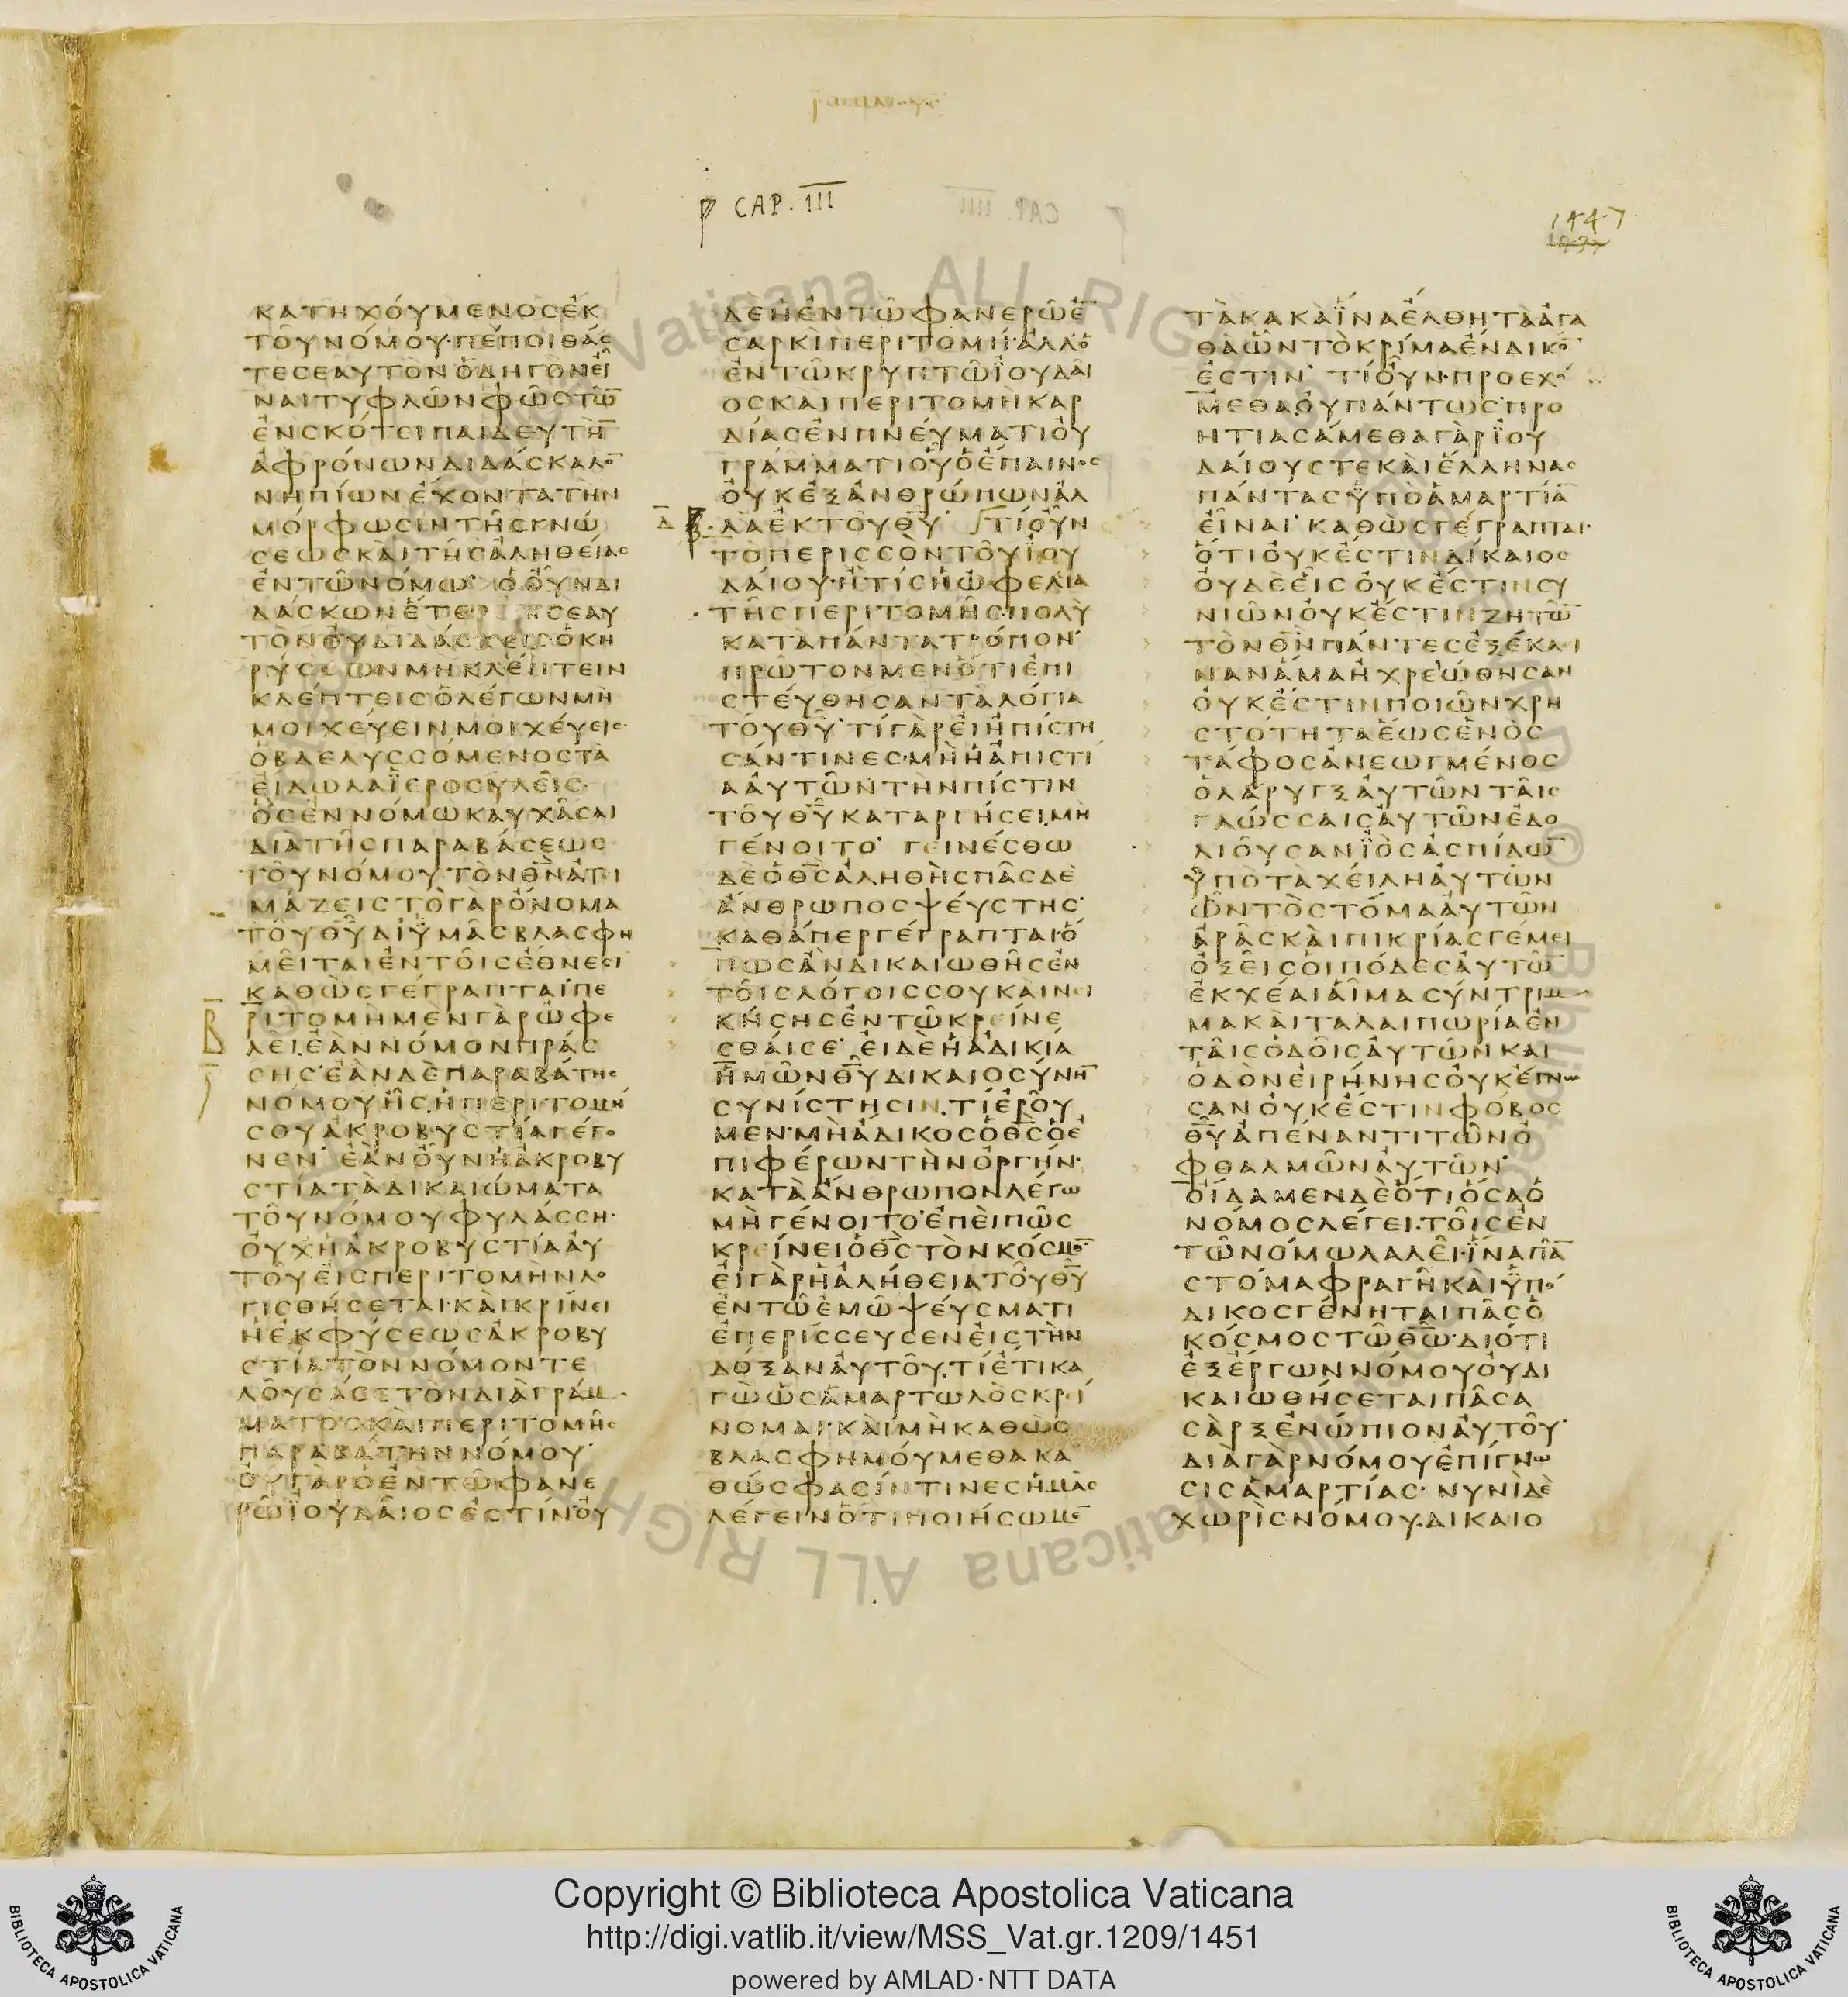 ῥωμαίου
CAP. III
1447
ΚΑΤΗΧΟΎΜΕΝΟϹἘΚ
ΤΟῦΝΌΜΟΥ·ΠΈΠΟΙΘΆϹ
ΤΕϹΕΑΥΤῸΝὉΔΗΓῸΝΕἶ
ΝΑΙΤΥΦΛῶΝΦῶϹΤῶ̅
ἘΝϹΚΌΤΕΙΠΑΙΔΕΥΤῊ̅
ἈΦΡΌΝΩΝΔΙΔΆϹΚΑΛΟ̅
ΝΗΠΊΩΝἜΧΟΝΤΑΤῊΝ
ΜΌΡΦΩϹΙΝΤῆϹΓΝΏ
ϹΕΩϹΚΑῚΤῆϹἈΛΗΘΕΊΑϹ
ἘΝΤῶΝΌΜΩ· ὉΟὖΝΔΙ
ΔΆϹΚΩΝἝΤΕΡΟΝϹΕΑΥ
ΤῸΝΟὐΔΙΔΆϹΚΕΙϹ·ὉΚΗ
ΡΎϹϹΩΝΜΗΚΛΈΠΤΕΙΝ
ΚΛΈΠΤΕΙϹὉΛΈΓΩΝΜῊ
ΜΟΙΧΕΎΕΙΝΜΟΙΧΕΎΕΙϹ·
ὉΒΔΕΛΥϹϹΌΜΕΝΟϹΤᾺ
ΕἴΔΩΛΑΪΕΡΟϹΥΛΕῖϹ·
ὋϹἘΝΝΌΜΩΚΑΥΧᾶϹΑΙ
ΔΙᾺΤῆϹΠΑΡΑΒΆϹΕΩϹ
ΤΟῦΝΌΜΟΥ·ΤῸΝΘ̅Ν̅ἈΤΙ
ΜΆΖΕΙϹΤῸΓᾺΡὌΝΟΜΑ
ΤΟῦΘ̅Υ̅ΔΙΫΜᾶϹΒΛΑϹΦΗ
ΜΕῖΤΑΙἘΝΤΟῖϹἜΘΝΕϹΙ
ΚΑΘῺϹΓΈΓΡΑΠΤΑΙ·ΠΕ
ΡΙΤΟΜῊΜΕΝΓᾺΡὨΦΕ
ΛΕῖ·ἘᾺΝΝΌΜΟΝΠΡΆϹ
ϹΗϹ·ἘᾺΝΔῈΠΑΡΑΒΆΤΗϹ
ΝΌΜΟΥᾖϹ·ἩΠΕΡΙΤΟΜΉ
ϹΟΥἈΚΡΟΒΥϹΤΊΑΓΈΓΟ
ΝΕΝ· ἘᾺΝΟὖΝἩἈΚΡΟΒΥ
ϹΤΊΑΤᾺΔΙΚΑΙΏΜΑΤΑ
ΤΟῦΝΌΜΟΥΦΥΛΆϹϹΗ·
ΟὐΧἩἈΚΡΟΒΥϹΤΊΑΑὐ
ΤΟῦΕἰϹΠΕΡΙΤΟΜῊΝΛΟ
ΓΙϹΘΉϹΕΤΑΙ·ΚΑῚΚΡΙΝΕῖ
ἩἘΚΦΎϹΕΩϹἈΚΡΟΒΥ
ϹΤΊΑΤῸΝΝΌΜΟΝΤΕ
ΛΟῦϹΆϹΕΤῸΝΔΙᾺΓΡΆΜ
ΜΑΤΟϹΚΑῚΠΕΡΙΤΟΜῆϹ
ΠΑΡΑΒΆΤΗΝΝΌΜΟΥ·
ΟὐΓᾺΡὉἘΝΤῶΦΑΝΕ
ΡῶἸΟΥΔΑῖΟϹἘϹΤΊΝ·Οὐ
ΔῈἩἘΝΤῶΦΑΝΕΡῶἘ̅
ϹΑΡΚῚΠΕΡΙΤΟΜΉ·ἈΛΛΌ
ἘΝΤῶΚΡΥΠΤῶἸΟΥΔΑῖ
ΟϹΚΑΙΠΕΡΙΤΟΜῊΚΑΡ
ΔΊΑϹἘΝΠΝΕΎΜΑΤΙΟὐ
ΓΡΆΜΜΑΤΙΟὗὉἜΠΑΙΝΟϹ
ΟὐΚἘΞἈΝΘΡΏΠΩΝἈΛ
ΛΑἘΚΤΟῦΘ̅Υ̅· ΤΊΟὖΝ
ΤῸΠΕΡΙϹϹῸΝΤΟῦἸΟΥ
ΔΑΊΟΥ·ἪΤΊϹἩὨΦΕΛΊΑ
ΤῆϹΠΕΡΙΤΟΜῆϹ·ΠΟΛῪ
ΚΑΤΑΠΆΝΤΑΤΡΌΠΟΝ·
ΠΡῶΤΟΝΜΕΝὍΤΙἘΠΙ
ϹΤΕΎΘΗϹΑΝΤᾺΛΌΓΙΑ
ΤΟῦΘ̅Υ̅·ΤΊΓᾺΡΕἰἨΠΊϹΤΗ
ϹΆΝΤΙΝΕϹ·ΜῊἩἈΠΙϹΤΊ
ΑΑὐΤῶΝΤῊΝΠΊϹΤΙΝ
ΤΟῦΘ̅Υ̅ΚΑΤΑΡΓΉϹΕΙ·ΜῊ
ΓΈΝΟΙΤΟ· ΓΕΙΝΈϹΘΩ
ΔῈὉΘ̅Ϲ̅ἈΛΗΘῊϹΠᾶϹΔῈ
ἌΝΘΡΩΠΟϹΨΕΎϹΤΗϹ·
ΚΑΘΆΠΕΡΓΈΓΡΑΠΤΑΙ·Ὅ
ΠΩϹἊΝΔΙΚΑΙΩΘῆϹἘΝ
ΤΟῖϹΛΌΓΟΙϹϹΟΥΚΑῚΝΕΙ
ΚΉϹΗϹἘΝΤῶΚΡΕΊΝΕ
ϹΘΑΊϹΕ· ΕἰΔῈἩἈΔΙΚΊΑ
ἩΜῶΝΘ̅Υ̅ΔΙΚΑΙΟϹΎΝΗ̅
ϹΥΝΊϹΤΗϹΙΝ·ΤΊἘΡΟῦ
ΜΕΝ·ΜῊἌΔΙΚΟϹὉΘ̅Ϲ̅ὉἘ
ΠΙΦΈΡΩΝΤῊΝὈΡΓΉΝ·
ΚΑΤᾺἌΝΘΡΩΠΟΝΛΈΓΩ
ΜῊΓΈΝΟΙΤΟ·ἘΠΕῚΠῶϹ
ΚΡΕΊΝΕΙὉΘ̅Ϲ̅ΤῸΝΚΌϹΜΟ̅·
ΕἰΓᾺΡἩἈΛΉΘΕΙΑΤΟῦΘ̅Υ̅
ἘΝΤῶἘΜῶΨΕΎϹΜΑΤΙ
ἘΠΕΡΊϹϹΕΥϹΕΝΕἰϹΤῊΝ
ΔΌΞΑΝΑὐΤΟῦ·ΤΊἜΤΙΚΑ
ΓῺὩϹἉΜΑΡΤΩΛῸϹΚΡΕΊ
ΝΟΜΑΙ·ΚΑῚΜῊΚΑΘῺϹ
ΒΛΑϹΦΗΜΟΎΜΕΘΑΚΑ
ΘΏϹΦΑϹΊΝΤΙΝΕϹἩΜᾶϹ
ΛΈΓΕΙΝὍΤΙΠΟΙΉϹΩΜΕ̅
ΤᾺΚΑΚᾺἽΝΑἜΛΘΗΤᾺἈΓΑ
ΘΆὯΝΤῸΚΡΊΜΑἜΝΔΙΚΟ̅
ἘϹΤΙΝ· ΤΊΟὖΝ·ΠΡΟΕΧΌ
ΜΕΘΑΟὐΠΆΝΤΩϹ·ΠΡΟ
ΗΤΙΑϹΆΜΕΘΑΓᾺΡἸΟΥ
ΔΑΊΟΥϹΤΕΚΑῚἝΛΛΗΝΑϹ
ΠΆΝΤΑϹΫΠῸἉΜΑΡΤΊΑ̅
ΕἶΝΑΙ· ΚΑΘῺϹΓΈΓΡΑΠΤΑΙ·
ὍΤΙΟὐΚἜϹΤΙΝΔΊΚΑΙΟϹ
ΟὐΔΕΕἷϹΟὐΚἜϹΤΙΝϹΥ
ΝΙῶΝΟὐΚἜϹΤΙΝΖΗΤῶ̅
ΤῸΝΘ̅Ν̅ΠΆΝΤΕϹἘΞΈΚΛΙ
ΝΑΝἍΜΑἨΧΡΕΏΘΗϹΑΝ
ΟὐΚἜϹΤΙΝΠΟΙῶΝΧΡΗ
ϹΤΌΤΗΤΑἝΩϹἙΝῸϹ
ΤΆΦΟϹἈΝΕΩΓΜΈΝΟϹ
ὉΛΆΡΥΓΞΑὐΤῶΝΤΑῖϹ
ΓΛΏϹϹΑΙϹΑὐΤῶΝἘΔΟ
ΛΙΟῦϹΑΝἸῸϹἈϹΠΊΔΩ̅
ΫΠῸΤᾺΧΕΊΛΗΑὐΤῶΝ
ὯΝΤῸϹΤΌΜΑΑὐΤῶΝ
ἈΡᾶϹΚΑῚΠΙΚΡΊΑϹΓΈΜΕΙ
ὈΞΕῖϹΟἱΠΌΔΕϹΑὐΤῶ̅
ἘΚΧΈΑΙΑἷΜΑϹΎΝΤΡΙΜ
ΜΑΚΑῚΤΑΛΑΙΠΩΡΊΑἘΝ
ΤΑῖϹὉΔΟῖϹΑὐΤῶΝΚΑΙ
ὉΔῸΝΕἰΡΉΝΗϹΟὐΚἜΓΝΩ
ϹΑΝΟὐΚἜϹΤΙΝΦΌΒΟϹ
Θ̅Υ̅ἈΠΈΝΑΝΤΙΤῶΝὈ
ΦΘΑΛΜῶΝΑὐΤῶΝ·
ΟἴΔΑΜΕΝΔῈὍΤΙὍϹΑὉ
ΝΌΜΟϹΛΈΓΕΙ·ΤΟῖϹἘΝ
ΤῶΝΌΜΩΛΑΛΕῖ·ἽΝΑΠΑ̅
ϹΤΌΜΑΦΡΑΓῆΚΑῚΫΠΌ
ΔΙΚΟϹΓΈΝΗΤΑΙΠᾶϹὉ
ΚΌϹΜΟϹΤῶΘ̅Ω̅·ΔΙΟΤΙ
ἘΞἜΡΓΩΝΝΌΜΟΥΟὐΔΙ
ΚΑΙΩΘΉϹΕΤΑΙΠᾶϹΑ
ϹᾺΡΞἘΝΏΠΙΟΝΑὐΤΟῦ·
ΔΙᾺΓᾺΡΝΌΜΟΥἘΠΊΓΝΩ
ϹΙϹἉΜΑΡΤΊΑϹ· ΝΥΝῚΔῈ
ΧΩΡῚϹΝΌΜΟΥ·ΔΙΚΑΙΟ
Copyright © Biblioteca Apostolica Vaticana
http://digi.vatlib.it/view/MSS_Vat.gr.1209/1451
powered by AMLAD·NTT DATA
BIBLIOTECA APOSTOLICA VATICANA
BIBLIOTECA APOSTOLICA VATICANA